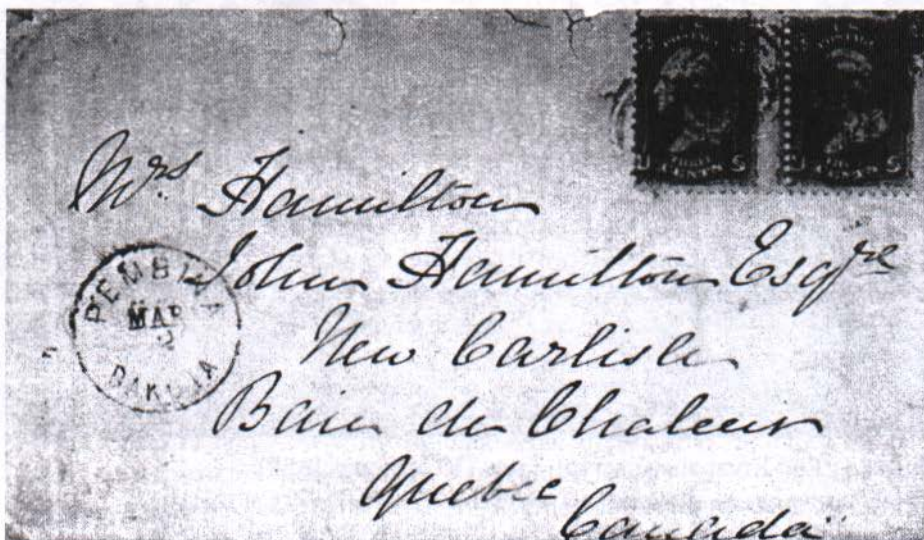 Mrs Hamilton
John Hamilton Esqre
New Carlisle
Baie de Chaleur
Quebec
Canada
PEMBINA
MAR
DAKOTA